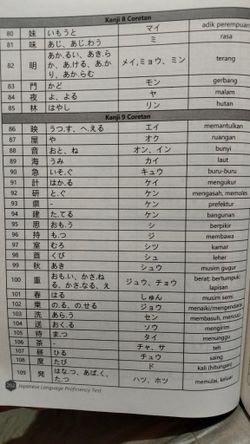 Kanji 8 Coretan
80 妹 いもうと マイ adik perempuan
81 味 あじ、あじ.わう ミ rasa
82 明 あか.るい、あき.らか、あ.ける、あか.り、あか.らむ メイ,ミョウ、ミン terang
83 門 かど モン gerbang
84 夜 よ、よる ヤ malam
85 林 はやし リン hutan
Kanji 9 Coretan
86 映 うつ.す、へ.える エイ memantulkan
87 屋 や オク ruangan
88 音 おと、ね オン、イン bunyi
89 海 うみ カイ laut
90 急 いそ.ぐ キュウ buru-buru
91 計 はか.る ケイ mengukur
92 研 と.ぐ ケン mengasah,
93 県 - ケン prefektur
94 建 た.てる ケン bangunan
95 思 おも.う シ berpikir
96 持 も.つ ジ membawa
97 室 むろ シツ kamar
98 首 くび シュ leher
99 秋 あき シュウ musim gugur
100 重 おも.い、かさ.ねる、かさ.なる、え ジュウ、チョウ berat; bertumpuk; lapisan
101 春 はる しゅん musim semi
102 乗 の.る、の.せる ジョウ menaiki/mengendarai
103 洗 あら.う セン membasuh, mencuci
104 送 おく.る ソウ mengirim
105 待 ま.つ タイ menunggu
106 茶 - チャ、サ teh
107 昼 ひる チュウ saing
108 度 たび ド kali (hitungan)
109 発 はな.つ、あば.く、た.つ ハツ、ホツ memulai, keluar
Japanese Language Proficiency Test